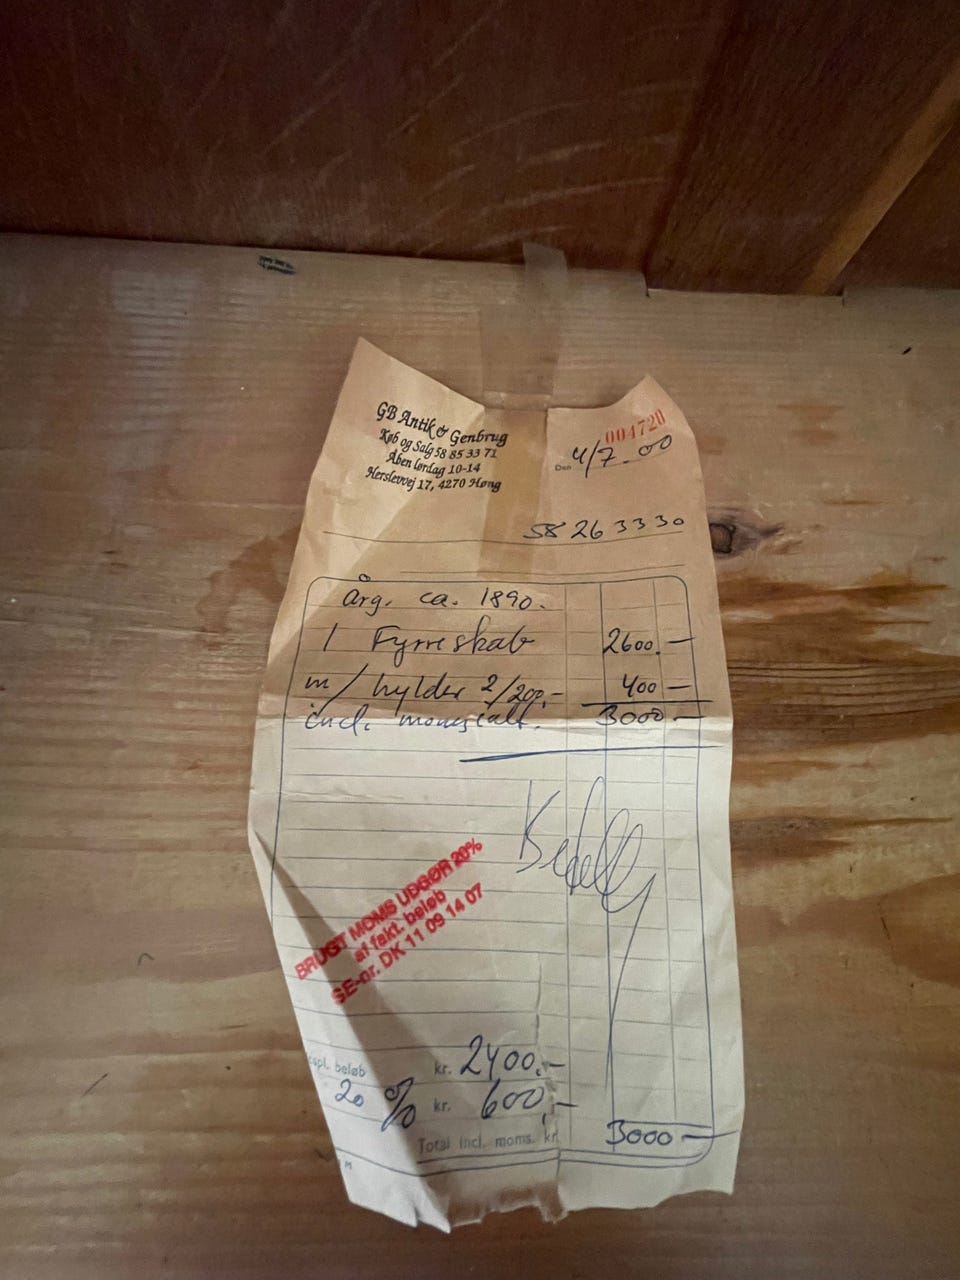 GB Antik & Genbrug
Køb og Salg 58 85 33 71
Åben lørdag 10-14
Herslevvej 17, 4270 Høng
004720
Den 4/7.00
58 26 33 30
Årg. ca. 1890.
1 Fyrreskab 2600.-
m/ hylder 2/200,- 400 -
incl. moms ialt. 3000 -
BRUGT MOMS UDGØR 20%
af fakt. beløb
SE-nr. DK 11 09 14 07
spl. beløb kr. 2400,-
20 % kr. 600,-
Total incl. moms. kr. 3000 -